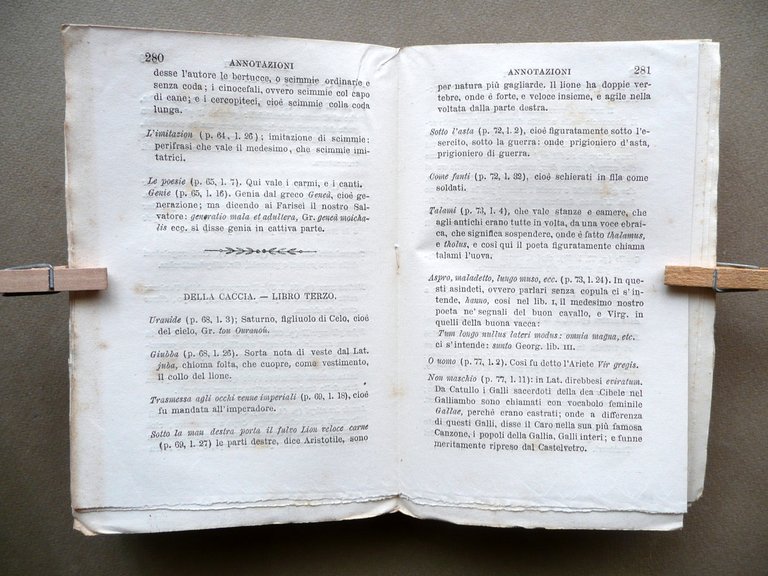 280
ANNOTAZIONI
desse l'autore le bertucce, o scimmie ordinarie e
senza coda; i cinocefali, ovvero scimmie col capo
di cane; e i cercopiteci, cioè scimmie colla coda
lunga.
L'imitazion (p. 64, l. 26); imitazione di scimmie:
perifrasi che vale il medesimo, che scimmie imi-
tatrici.
Le poesie (p. 65, l. 7). Qui vale i carmi, e i canti.
Genie (p. 65, l. 16). Genia dal greco Geneá, cioè ge-
nerazione; ma dicendo ai Farisei il nostro Sal-
vatore: generatio mala et adultera, Gr. geneá moicha-
lis ecc. si disse genia in cattiva parte.
DELLA CACCIA. — LIBRO TERZO.
Uranide (p. 68, l. 3); Saturno, figliuolo di Celo, cioè
del cielo, Gr. tou Ouranoú.
Giubba (p. 68, l. 26). Sorta nota di veste dal Lat.
juba, chioma folta, che cuopre, come vestimento,
il collo del lione.
Trasmessa agli occhi venne imperiali (p. 69, l. 18), cioè
fu mandata all'imperadore.
Sotto la man destra porta il fulvo Lion veloce carne
(p. 69, l. 27) le parti destre, dice Aristotile, sono
ANNOTAZIONI
281
per natura più gagliarde. Il lione ha doppie ver-
tebre, onde é forte, e veloce insieme, e agile nella
voltata dalla parte destra.
Sotto l'asta (p. 72, l. 2), cioé figuratamente sotto l'e-
sercito, sotto la guerra: onde prigioniero d'asta,
prigioniero di guerra.
Come fanti (p. 72, l. 32), cioé schierati in fila come
soldati.
Talami (p. 73, l. 4), che vale stanze e camere, che
agli antichi erano tutte in volta, da una voce ebrai-
ca, che significa sospendere, onde é fatto thalamus,
e tholus, e cosi qui il poeta figuratamente chiama
talami l'uova.
Aspro, maladetto, lungo muso, ecc. (p. 73, l. 24). In que-
sti asindeti, ovvero parlari senza copula ci s'in-
tende, hanno, così nel lib. I, il medesimo nostro
poeta ne' segnali del buon cavallo, e Virg. in
quelli della buona vacca:
Tum longo nullus lateri modus: omnia magna, etc.
ci s'intende: sunto Georg. lib. III.
O uomo (p. 77, l. 2). Così fu detto l'Ariete Vir gregis.
Non maschio (p. 77, l. 11): in Lat. direbbesi eviratum.
Da Catullo i Galli sacerdoti della dea Cibele nel
Galliambo sono chiamati con vocabolo feminile
Gallae, perché erano castrati; onde a differenza
di questi Galli, disse il Caro nella sua più famosa
Canzone, i popoli della Gallia, Galli interi; e funne
meritamente ripreso dal Castelvetro.